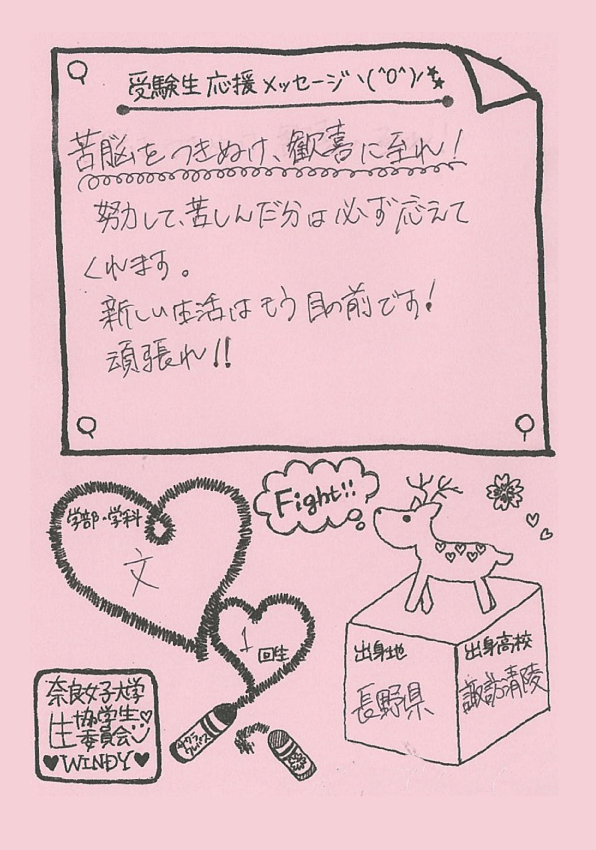 受験生応援メッセージヽ(^0^)ノ
苦脳をつきぬけ、歓喜に至れ!
努力して、苦しんだ分は必ず応えて
くれます。
新しい生活はもう目の前です!
頑張れ!!
Fight!!
学部・学科
文
1回生
出身地
長野県
出身高校
諏訪清陵
奈良女子大学
生協学生
委員会
WINDY
サクラ
クレパス